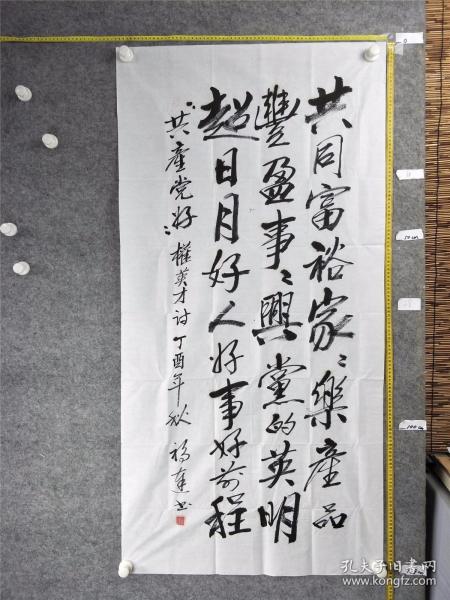 共同富裕家〻樂產品
豐盈事〻興黨的英明
超日月好人好事好前程
“共產党好”權英才诗丁酉年秋福连书
孔夫子旧书网
www.kongfz.com
50cm
100cm